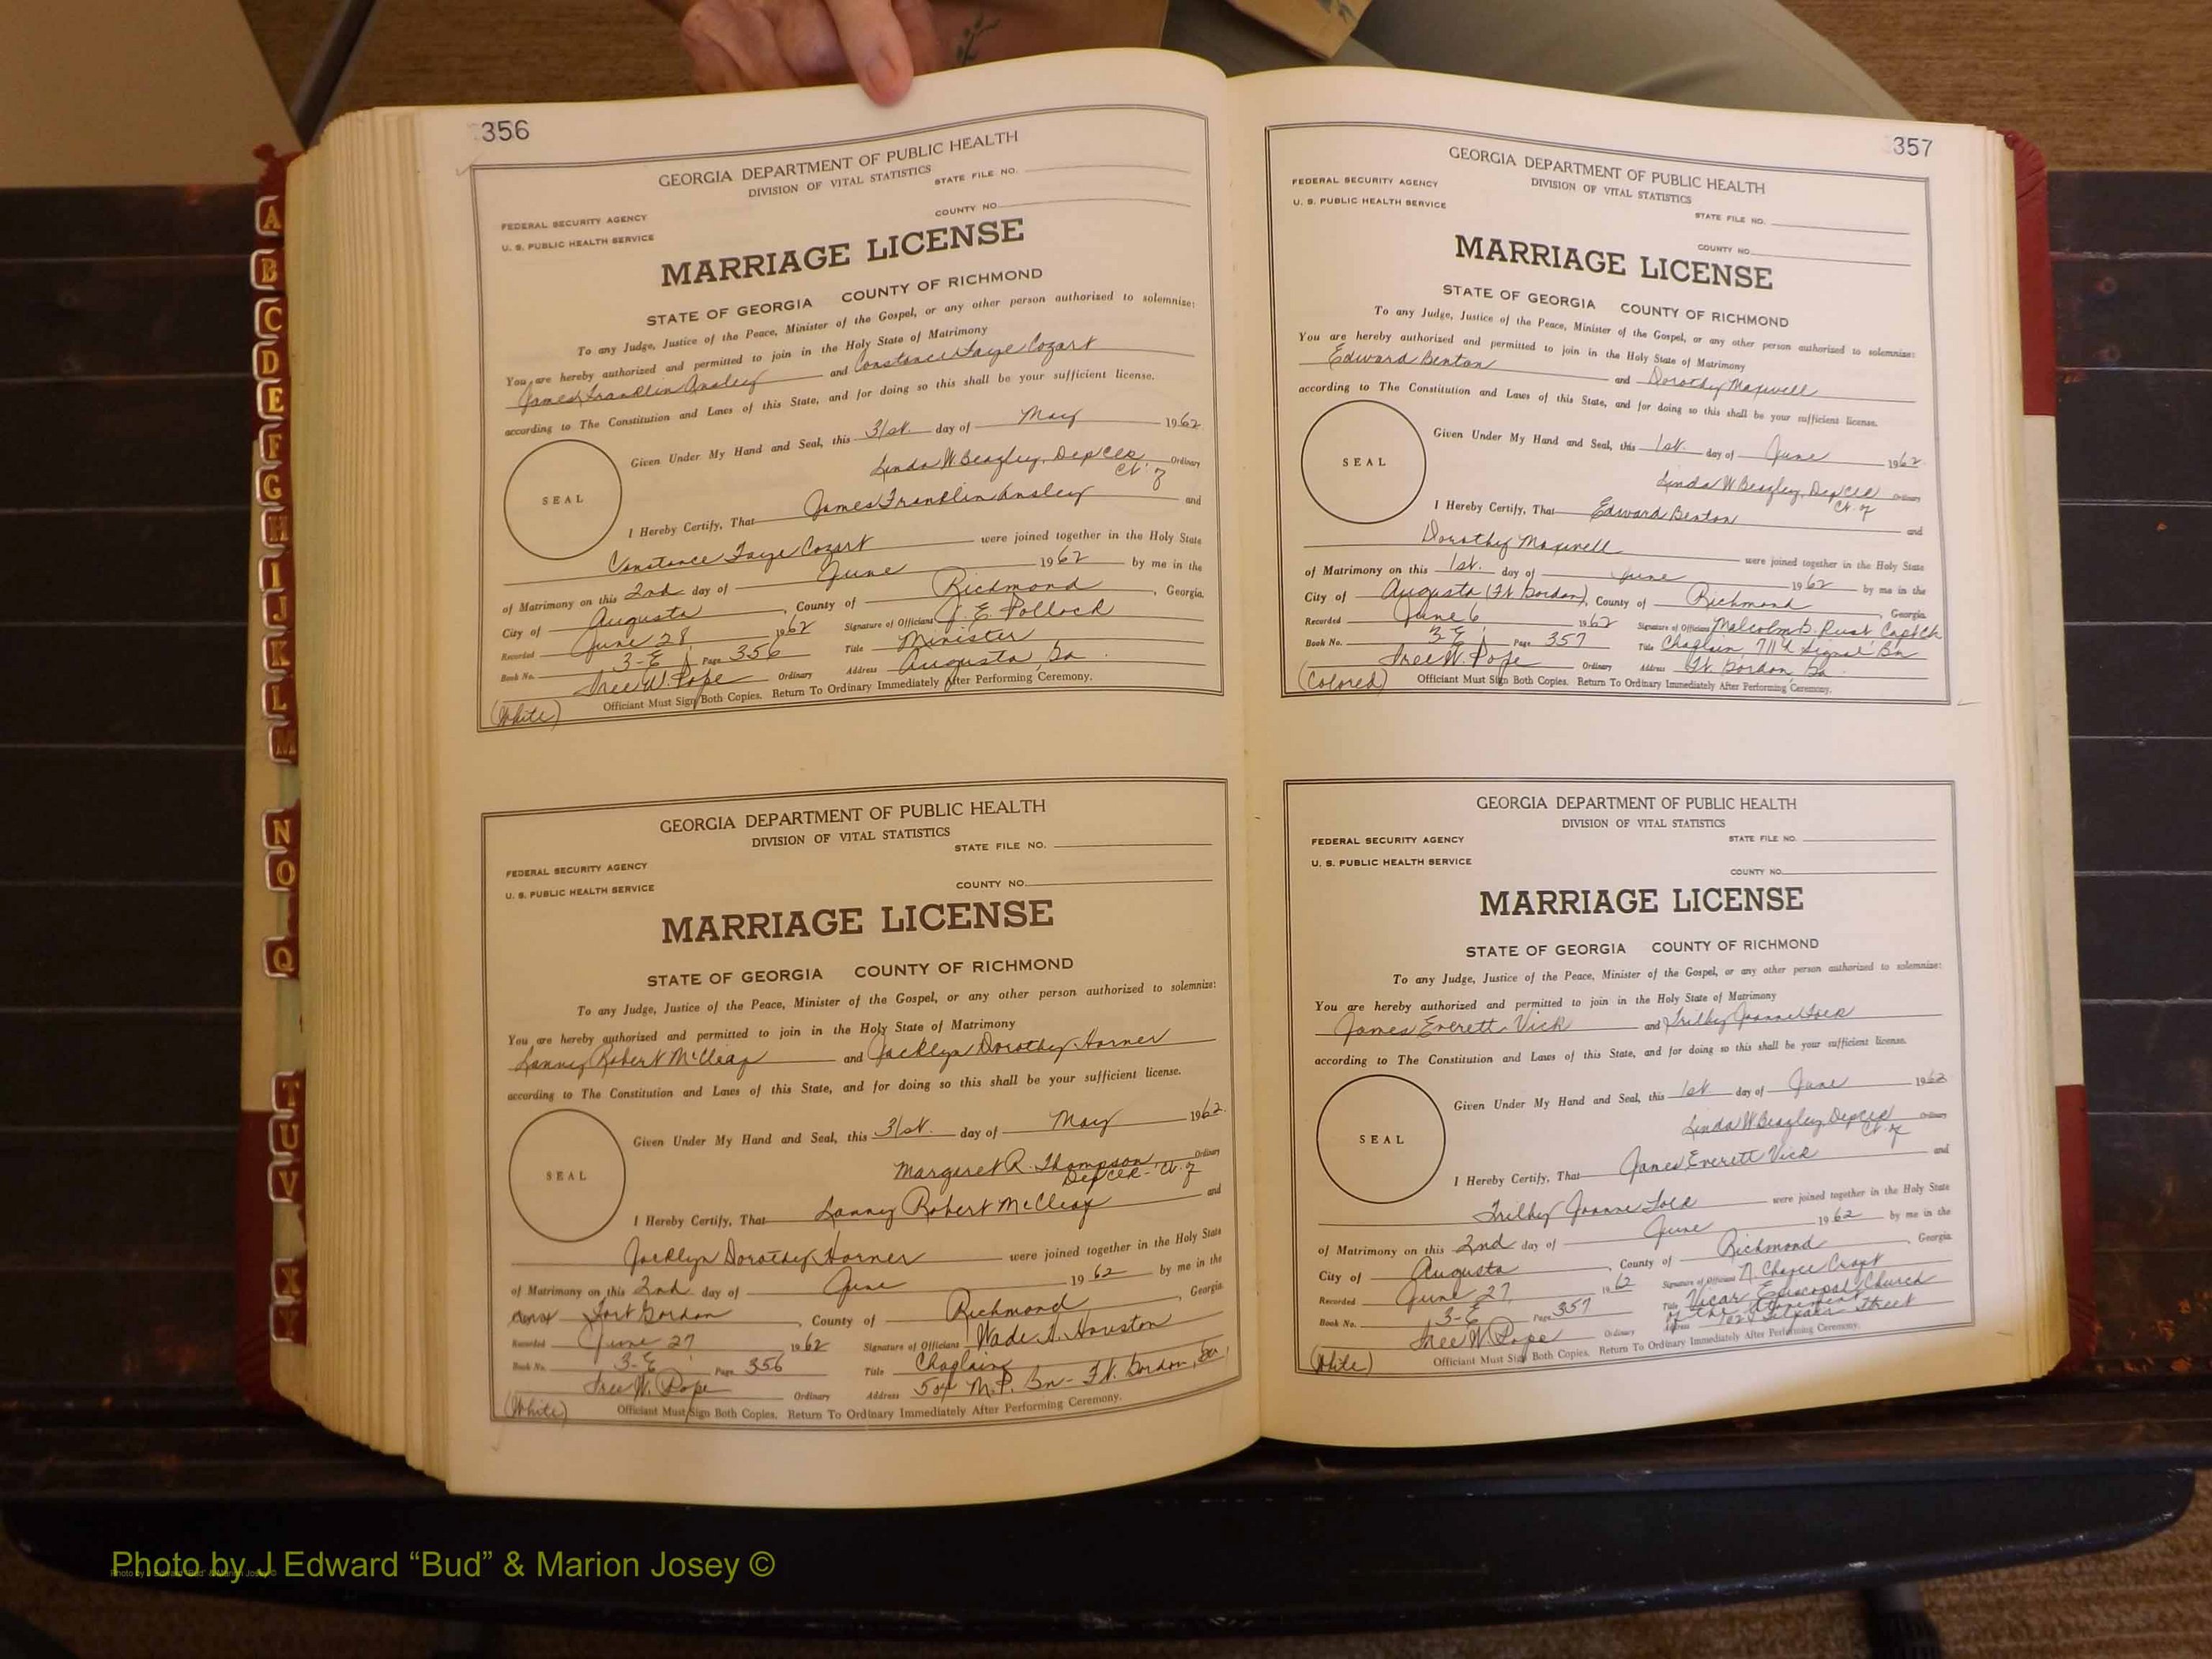 356
GEORGIA DEPARTMENT OF PUBLIC HEALTH
DIVISION OF VITAL STATISTICS
STATE FILE NO.
FEDERAL SECURITY AGENCY
COUNTY NO.
U. S. PUBLIC HEALTH SERVICE
MARRIAGE LICENSE
STATE OF GEORGIA COUNTY OF RICHMOND
To any Judge, Justice of the Peace, Minister of the Gospel, or any other person authorized to solemnize:
You are hereby authorized and permitted to join in the Holy State of Matrimony
James Franklin Ansley and Constance Faye Cozart
according to The Constitution and Laws of this State, and for doing so this shall be your sufficient license.
Given Under My Hand and Seal, this 31st. day of May 1962
Linda W Beazley, Dep Clk Ordinary
SEAL
I Hereby Certify, That James Franklin Ansley and
Constance Faye Cozart were joined together in the Holy State
of Matrimony on this 2nd day of June 1962 by me in the
City of Augusta, County of Richmond, Georgia.
Recorded June 28 1962 Signature of Officiant J. E. Pollock
Book No. 3-E Page 356 Title Minister
W. Pope Ordinary Address Augusta, Ga.
Officiant Must Sign Both Copies. Return To Ordinary Immediately After Performing Ceremony.
(White)
GEORGIA DEPARTMENT OF PUBLIC HEALTH
DIVISION OF VITAL STATISTICS
STATE FILE NO.
FEDERAL SECURITY AGENCY
COUNTY NO.
U. S. PUBLIC HEALTH SERVICE
MARRIAGE LICENSE
STATE OF GEORGIA COUNTY OF RICHMOND
To any Judge, Justice of the Peace, Minister of the Gospel, or any other person authorized to solemnize:
You are hereby authorized and permitted to join in the Holy State of Matrimony
Lanny Robert McCleaf and Jacklyn Dorothy Horner
according to The Constitution and Laws of this State, and for doing so this shall be your sufficient license.
Given Under My Hand and Seal, this 31st. day of May 1962
Margaret R. Thompson Ordinary
SEAL
I Hereby Certify, That Lanny Robert McCleaf and
Jacklyn Dorothy Horner were joined together in the Holy State
of Matrimony on this 2nd day of June 1962 by me in the
Fort Gordon, County of Richmond, Georgia.
Recorded June 27 1962 Signature of Officiant Wade H. Houston
Book No. 3-E Page 356 Title Chaplain
W. Pope Ordinary Address 504 M.P. Bn- Ft. Gordon, Ga.
Officiant Must Sign Both Copies. Return To Ordinary Immediately After Performing Ceremony.
(White)
357
GEORGIA DEPARTMENT OF PUBLIC HEALTH
FEDERAL SECURITY AGENCY
DIVISION OF VITAL STATISTICS
U. S. PUBLIC HEALTH SERVICE
STATE FILE NO.
COUNTY NO.
MARRIAGE LICENSE
STATE OF GEORGIA COUNTY OF RICHMOND
To any Judge, Justice of the Peace, Minister of the Gospel, or any other person authorized to solemnize:
You are hereby authorized and permitted to join in the Holy State of Matrimony
Edward Benton and Dorothy Maxwell
according to The Constitution and Laws of this State, and for doing so this shall be your sufficient license.
Given Under My Hand and Seal, this 1st. day of June 1962
Linda W Beazley, Dep Clk Ordinary
SEAL
I Hereby Certify, That Edward Benton and
Dorothy Maxwell were joined together in the Holy State
of Matrimony on this 1st. day of June 1962 by me in the
City of Augusta (Ft Gordon), County of Richmond, Georgia.
Recorded June 6 1962 Signature of Officiant Malcolm Capt Ch
Book No. 3-E Page 357 Title Chaplain, Signal Bn
W. Pope Ordinary Address Ft. Gordon, Ga
(Colored) Officiant Must Sign Both Copies. Return To Ordinary Immediately After Performing Ceremony.
GEORGIA DEPARTMENT OF PUBLIC HEALTH
DIVISION OF VITAL STATISTICS
FEDERAL SECURITY AGENCY STATE FILE NO.
U. S. PUBLIC HEALTH SERVICE
COUNTY NO.
MARRIAGE LICENSE
STATE OF GEORGIA COUNTY OF RICHMOND
To any Judge, Justice of the Peace, Minister of the Gospel, or any other person authorized to solemnize:
You are hereby authorized and permitted to join in the Holy State of Matrimony
James Everett Vick and Trilby Joanne
according to The Constitution and Laws of this State, and for doing so this shall be your sufficient license.
Given Under My Hand and Seal, this 1st. day of June 1962
Linda W Beazley, Dep Clk Ordinary
SEAL
I Hereby Certify, That James Everett Vick and
Trilby Joanne were joined together in the Holy State
of Matrimony on this 2nd day of June 1962 by me in the
City of Augusta, County of Richmond, Georgia
Recorded June 27, 1962 Signature of Officiant
Book No. 3-E Page 357 Title Vicar Episcopal Church
of the Atonement
W. Pope Ordinary Address Street
(White) Officiant Must Sign Both Copies. Return To Ordinary Immediately After Performing Ceremony.
A
B
C
D
E
F
G
H
I
J
K
L
M
N
O
Q
T
U
V
X
Y
Photo by J Edward “Bud” & Marion Josey ©
Photo by J Edward “Bud” & Marion Josey ©